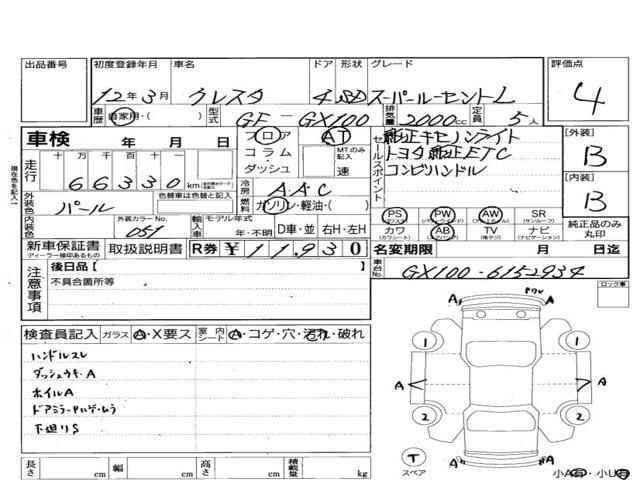 出品番号 初度登録年月 車名 ドア 形状 グレード 評価点
12年3月 クレスタ 4 SD スーパールーセントL 4
車歴 自家用・( ) 型式 GF-GX100 排気量 2000cc 定員 5人
車検 年 月 日 フロア AT
コラム・ダッシュ MTのみ記入 速
セールスポイント 純正キセノンライト
トヨタ純正ETC
コンビハンドル
[外装] B
[内装] B
現在色を記入
走行 十 万 千 百 十 66330 km
冷房 AAC
外装色 パール 色替車は色替と記入 燃料 ガソリン・軽油・( )
内装色 外装カラーNo. 051 輸入車 モデル年式 年・不明 D車・並 右H・左H
PS PW AW SR (サンルーフ)
カワ (カワシート) AB TV ナビ (ナビゲーション)
純正品のみ丸印
新車保証書 ディーラー捺印あるもの 取扱説明書 R券 ¥11,930
名変期限 月 日迄
注意事項 後日品[ ]
不具合箇所等
車台No. GX100-6152934
ロック車
検査員記入 ガラス A・X要ス 室内シート A・コゲ・穴・汚れ・破れ
ハンドルスレ
ダッシュウキ・A
ホイルA
下廻りS
A ワレ A
1 1
A A
2 2
A A
T スペア
小A有・小U有
長さ cm 幅 cm 高さ cm 積載量 kg